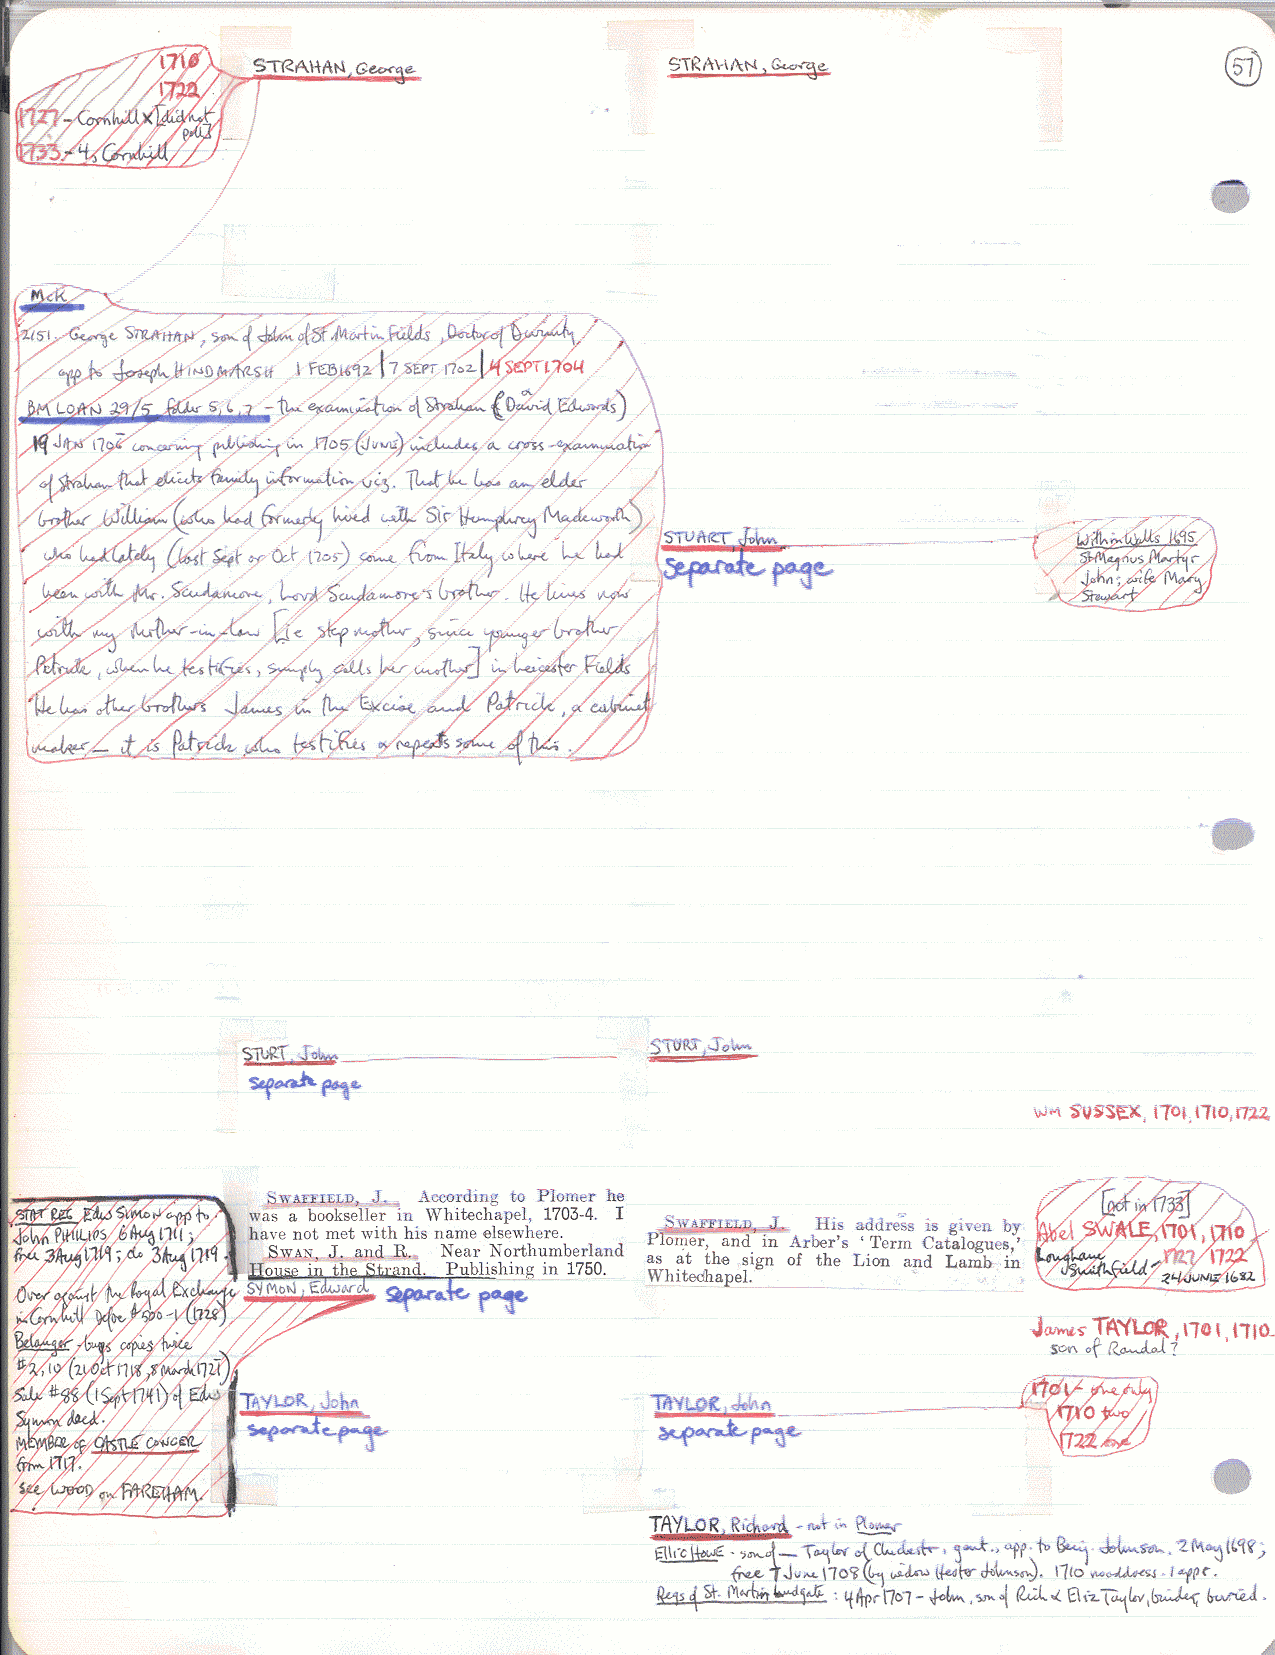 STRAHAN, George
STRAHAN, George
57
1710
1722
1727 - Cornhill x [did not
poll]
1733 - 4, Cornhill
McK
2151. George STRAHAN, son of John of St. Martin Fields, Doctor of Divinity,
app to Joseph HINDMARSH 1 FEB 1692 | 7 SEPT 1702 | 4 SEPT 1704
BM LOAN 29/5 folder 5, 6, 7 - the examination of Strahan (& David Edwards)
19 JAN 1705 concerning publishing in 1705 (JUNE) includes a cross-examination
of Strahan that elicits family information viz. That he has an elder
brother William (who had formerly lived with Sir Humphrey Mackworth)
who had lately (last Sept or Oct 1705) come from Italy where he had
been with Mr. Scudamore, Lord Scudamore's brother. He lives now
with my Mother-in-law [ie stepmother, since younger brother
Patrick, when he testifies, simply calls her mother] in Leicester Fields
He has other brothers James in the Excise and Patrick, a cabinet
maker - it is Patrick who testifies & repeats some of this.
STUART, John
separate page
Within Walls 1695
St Magnus Martyr
John; wife Mary
Stewart
STURT, John
separate page
STURT, John
WM SUSSEX, 1701, 1710, 1722
SWAFFIELD, J. According to Plomer he
was a bookseller in Whitechapel, 1703-4. I
have not met with his name elsewhere.
SWAN, J. and R. Near Northumberland
House in the Strand. Publishing in 1750.
SYMON, Edward separate page
SWAFFIELD, J. His address is given by
Plomer, and in Arber's 'Term Catalogues,'
as at the sign of the Lion and Lamb in
Whitechapel.
[not in 1733]
Abel SWALE, 1701, 1710
1727 1722
Smithfield -
24 JUNE 1682
STAT REG Edw SIMON app to
John PHILLIPS 6 Aug 1711;
free 3 Aug 1719; do 3 Aug 1719.
Over against the Royal Exchange
in Cornhill Defoe #500-1 (1728)
Belanger - buys copies twice
#2, 10 (21 Oct 1718, 8 March 1721)
Sale #88 (1 Sept 1741) of Edw
Symon decd.
MEMBER of CASTLE CONGER
from 1717.
see WOOD on FAREHAM.
James TAYLOR, 1701, 1710
son of Randal?
TAYLOR, John
separate page
TAYLOR, John
separate page
1701 - one only
1710 two
1722 one
TAYLOR, Richard - not in Plomer
Ellic HOWE - son of — Taylor of Chichestr, gent., app. to Benj. Johnson, 2 May 1698;
free 7 June 1708 (by widow Hester Johnson). 1710 no address - 1 appr.
Regs of St. Martin Ludgate : 4 Apr 1707 - John, son of Rich & Eliz Taylor, binder, buried.